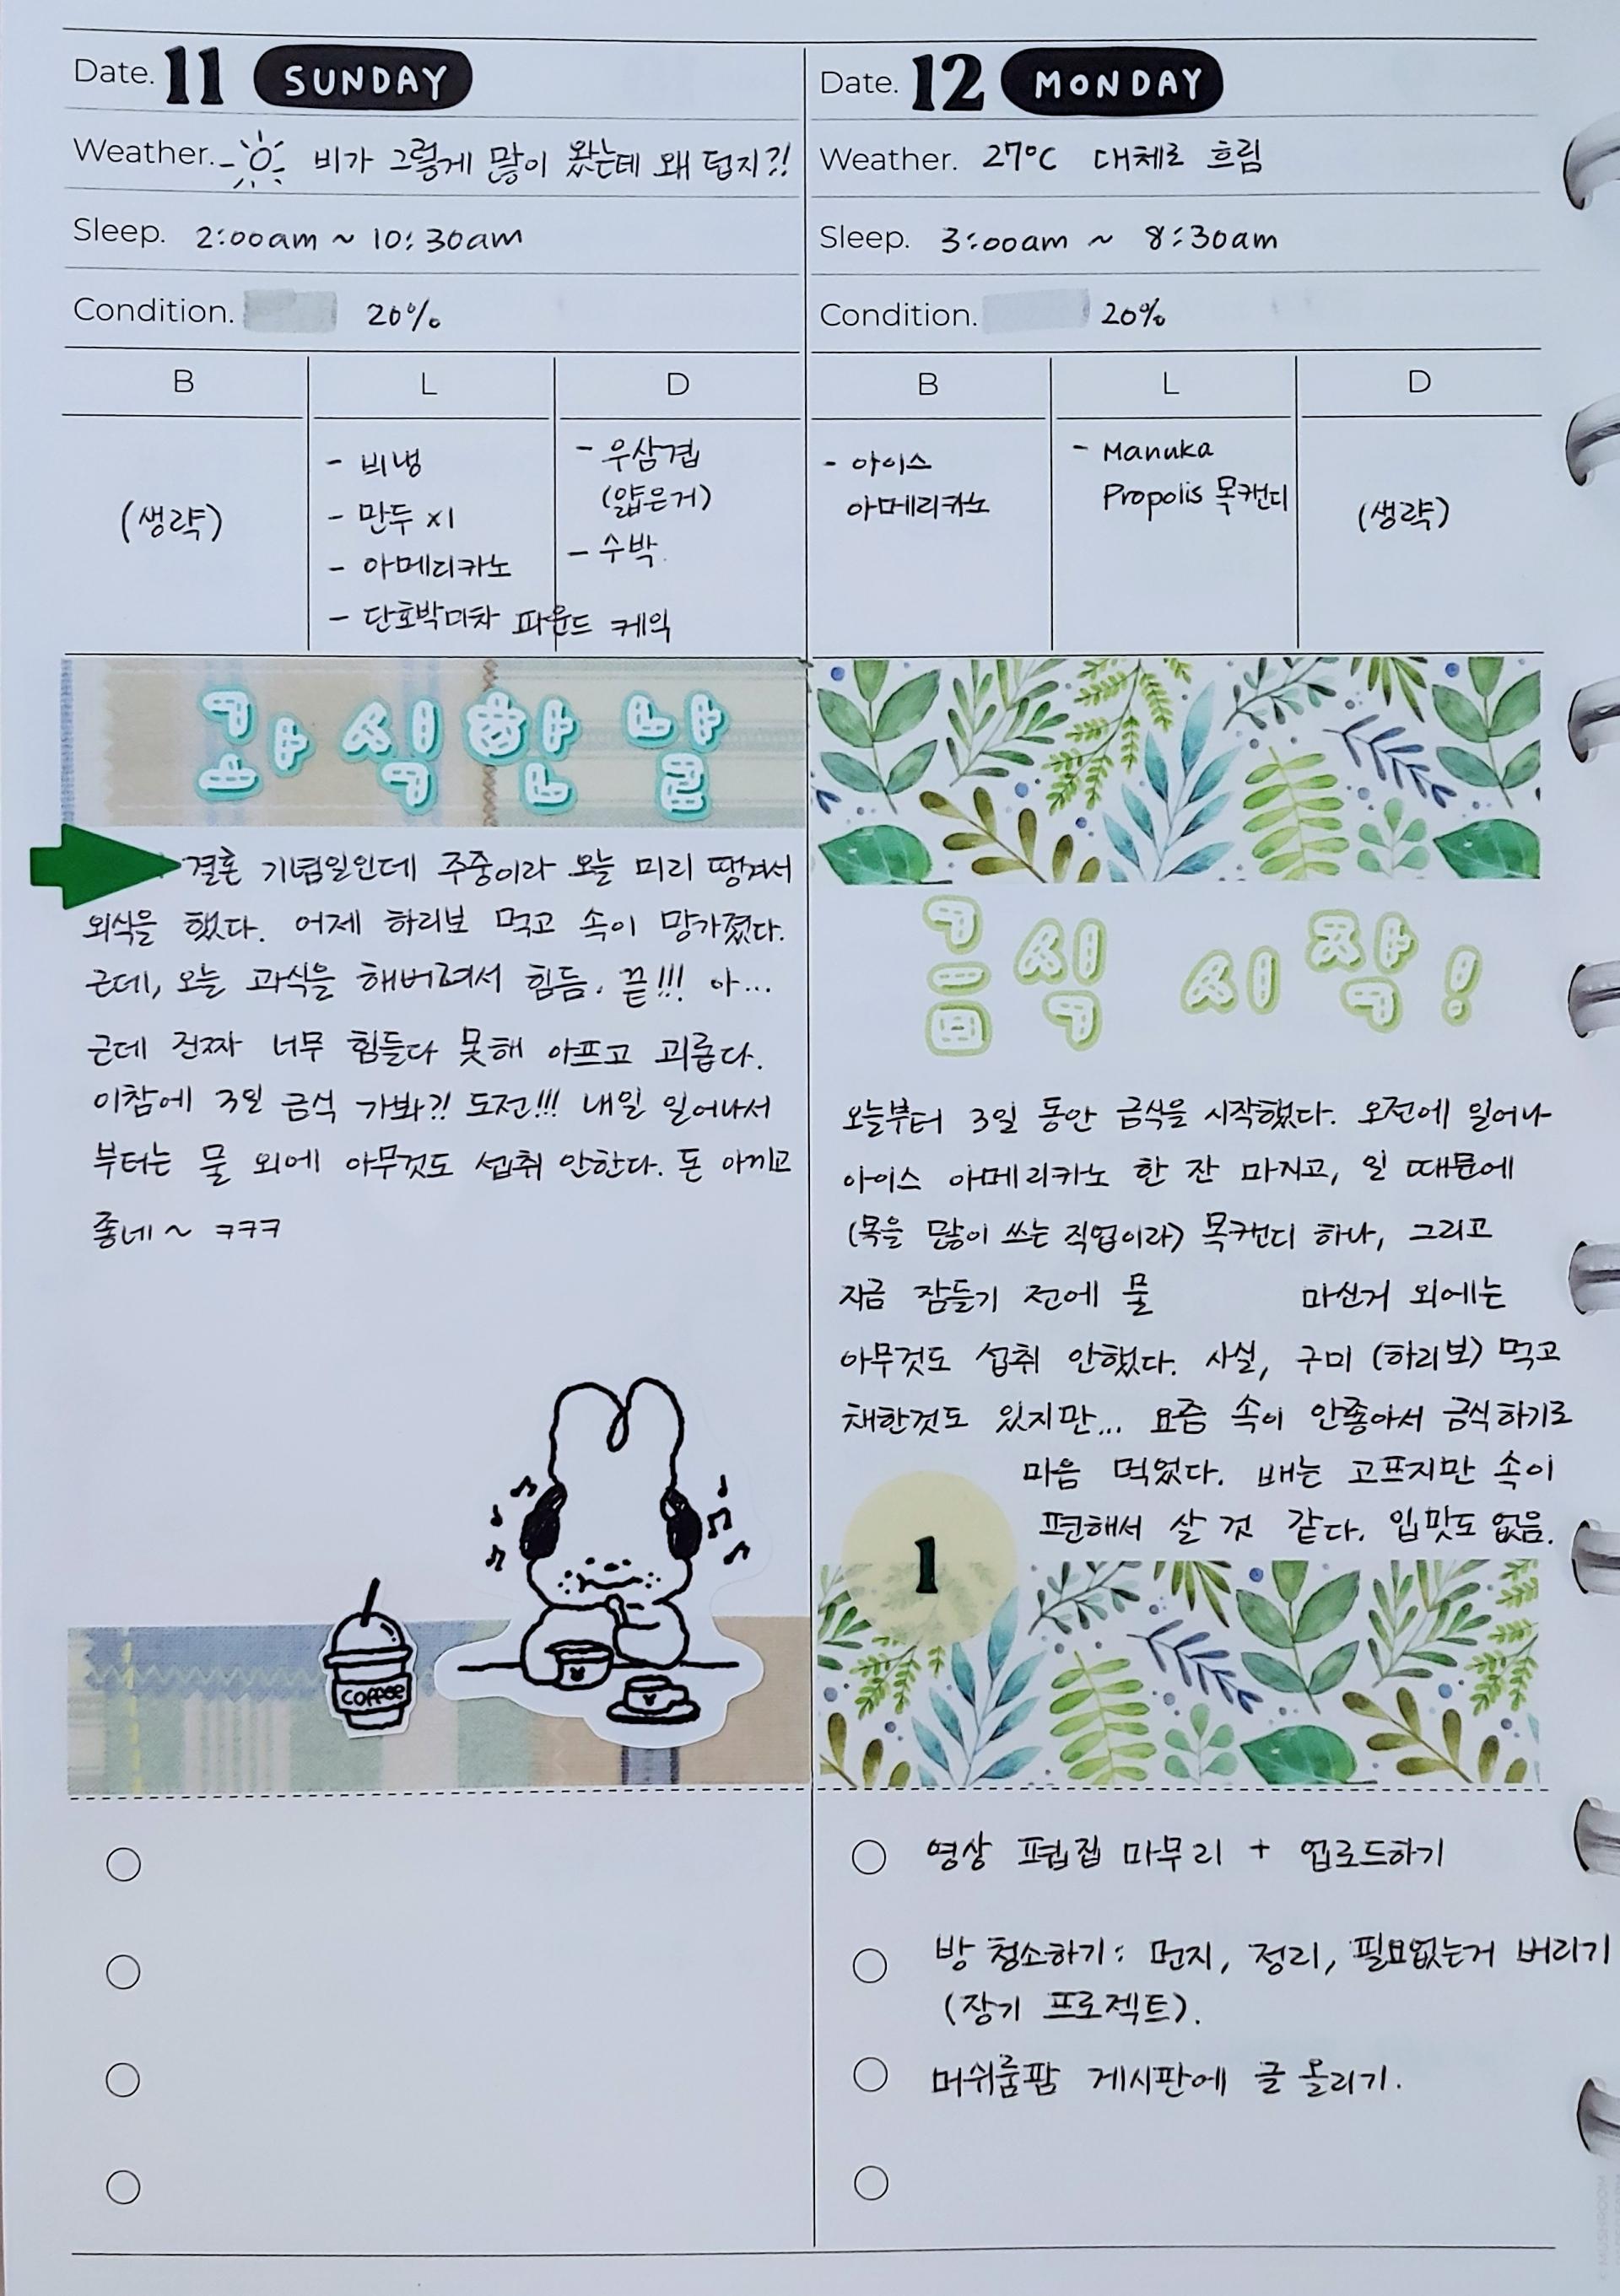 Date. 11 SUNDAY
Weather. 비가 그렇게 많이 왔는데 왜 덥지?!
Sleep. 2:00am ~ 10:30am
Condition. 20%
B
L
D
(생략)
- 비냉
- 만두 x1
- 아메리카노
- 단호박마차 파운드 케익
- 우삼겹
(얇은거)
- 수박
과식한 날
결혼 기념일인데 주중이라 오늘 미리 땡겨서
외식을 했다. 어제 하리보 먹고 속이 망가졌다.
근데, 오늘 과식을 해버려서 힘듬. 끝!!! 아...
근데 진짜 너무 힘들다 못해 아프고 괴롭다.
이참에 3일 금식 가봐?! 도전!!! 내일 일어나서
부터는 물 외에 아무것도 섭취 안한다. 돈 아끼고
좋네~ ㅋㅋㅋ
coffee
Date. 12 MONDAY
Weather. 27°C 대체로 흐림
Sleep. 3:00am ~ 8:30am
Condition. 20%
B
L
D
- 아이스
아메리카노
- Manuka
Propolis 목캔디
(생략)
금식 시작!
오늘부터 3일 동안 금식을 시작했다. 오전에 일어나
아이스 아메리카노 한 잔 마지고, 일 때문에
(목을 많이 쓰는 직업이라) 목캔디 하나, 그리고
지금 잠들기 전에 물 마신거 외에는
아무것도 섭취 안했다. 사실, 구미 (하리보) 먹고
채한것도 있지만... 요즘 속이 안좋아서 금식하기로
마음 먹었다. 배는 고프지만 속이
편해서 살 것 같다. 입맛도 없음.
1
영상 편집 마무리 + 업로드하기
방 청소하기: 먼지, 정리, 필요없는거 버리기
(장기 프로젝트).
머쉬룸팜 게시판에 글 올리기.